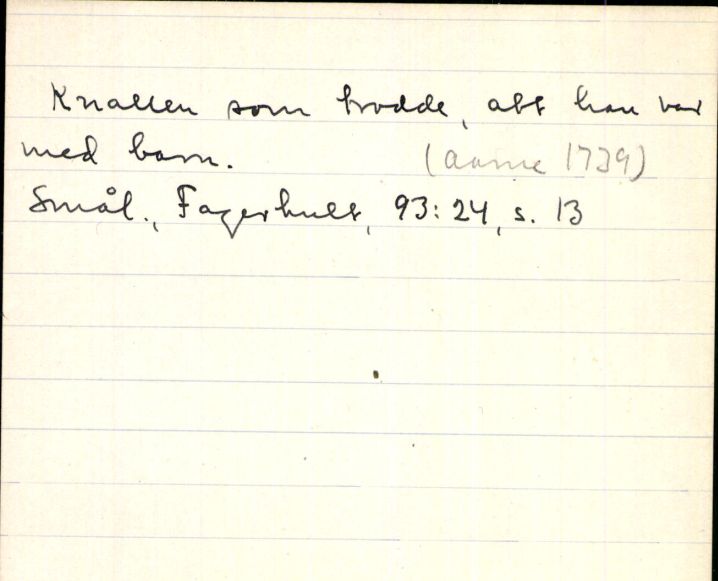 Knallen som trodde, att han var
med barn. (Aarne 1739)
Smål., Fagerhult, 93:24, s. 13